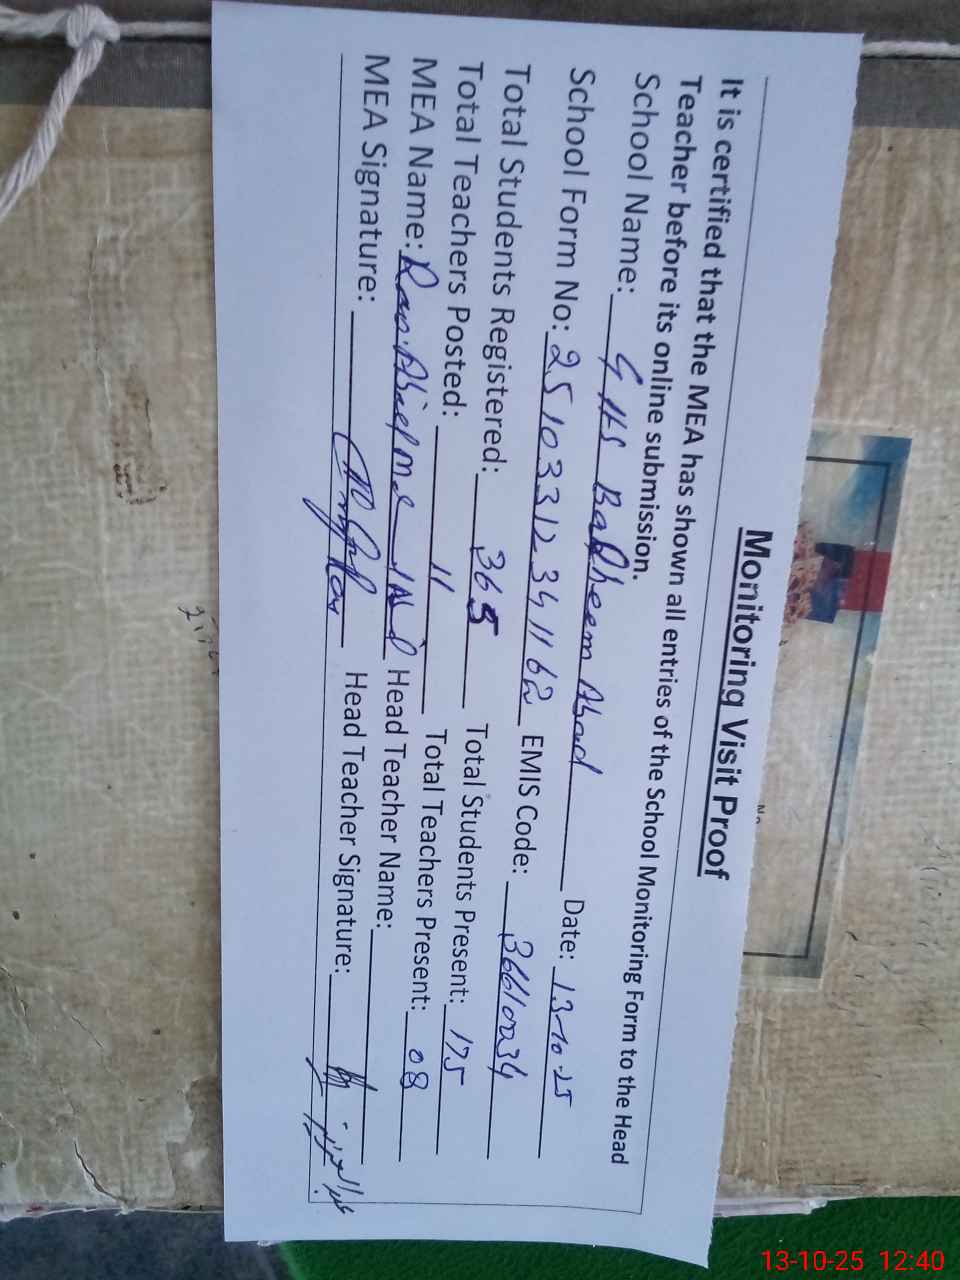 Monitoring Visit Proof
It is certified that the MEA has shown all entries of the School Monitoring Form to the Head
Teacher before its online submission.
School Name: GHS Bakheem Abad Date: 13-10-25
School Form No: 2510331234 1162 EMIS Code: 36610034
Total Students Registered: 365 Total Students Present: 175
Total Teachers Posted: 11 Total Teachers Present: 08
MEA Name: Head Teacher Name:
MEA Signature: Head Teacher Signature:
No
13-10-25 12:40